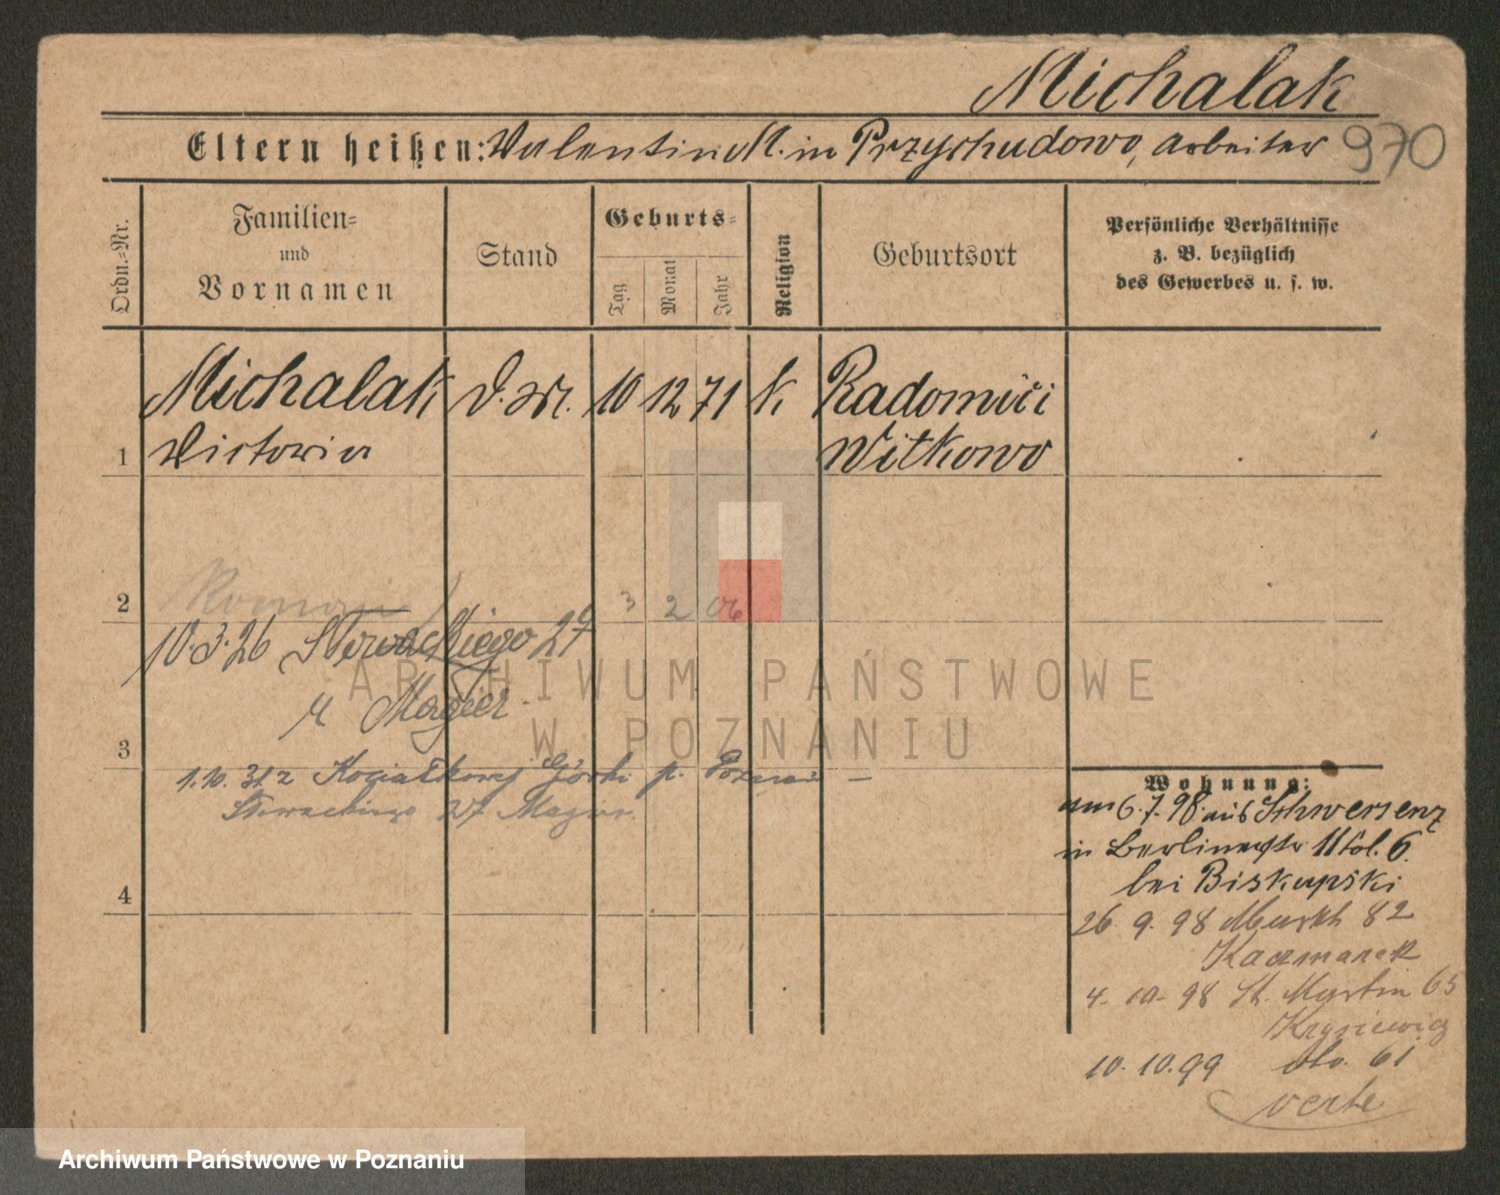 Michalak
Eltern heißen: Valentin M. in Przychudowo, Arbeiter 970
Ordn.=Nr.
Familien=
und
Vornamen
Stand
Geburts=
Tag
Monat
Jahr
Religion
Geburtsort
Persönliche Verhältnisse
z. B. bezüglich
des Gewerbes u. s. w.
Michalak D. M. 10 12 71 k Radomici
1 Victoria Witkowo
2 Roman 3 2 06
10.3.26 Słowackiego 27
u Magier
3
1.10.31 z Koziałkowy Górki p. Poznań –
Słowackiego 27 Magier
4
Wohnung:
am 6.7.98 aus Schwersenz
in Berlinerstr 11 Col. 6.
bei Biskupski
26. 9. 98 Markt 82
Kaczmarek
4. 10. 98 St. Martin 65
Krysiewicz
10. 10. 99 dto. 61
verte
ARCHIWUM PAŃSTWOWE
W POZNANIU
Archiwum Państwowe w Poznaniu